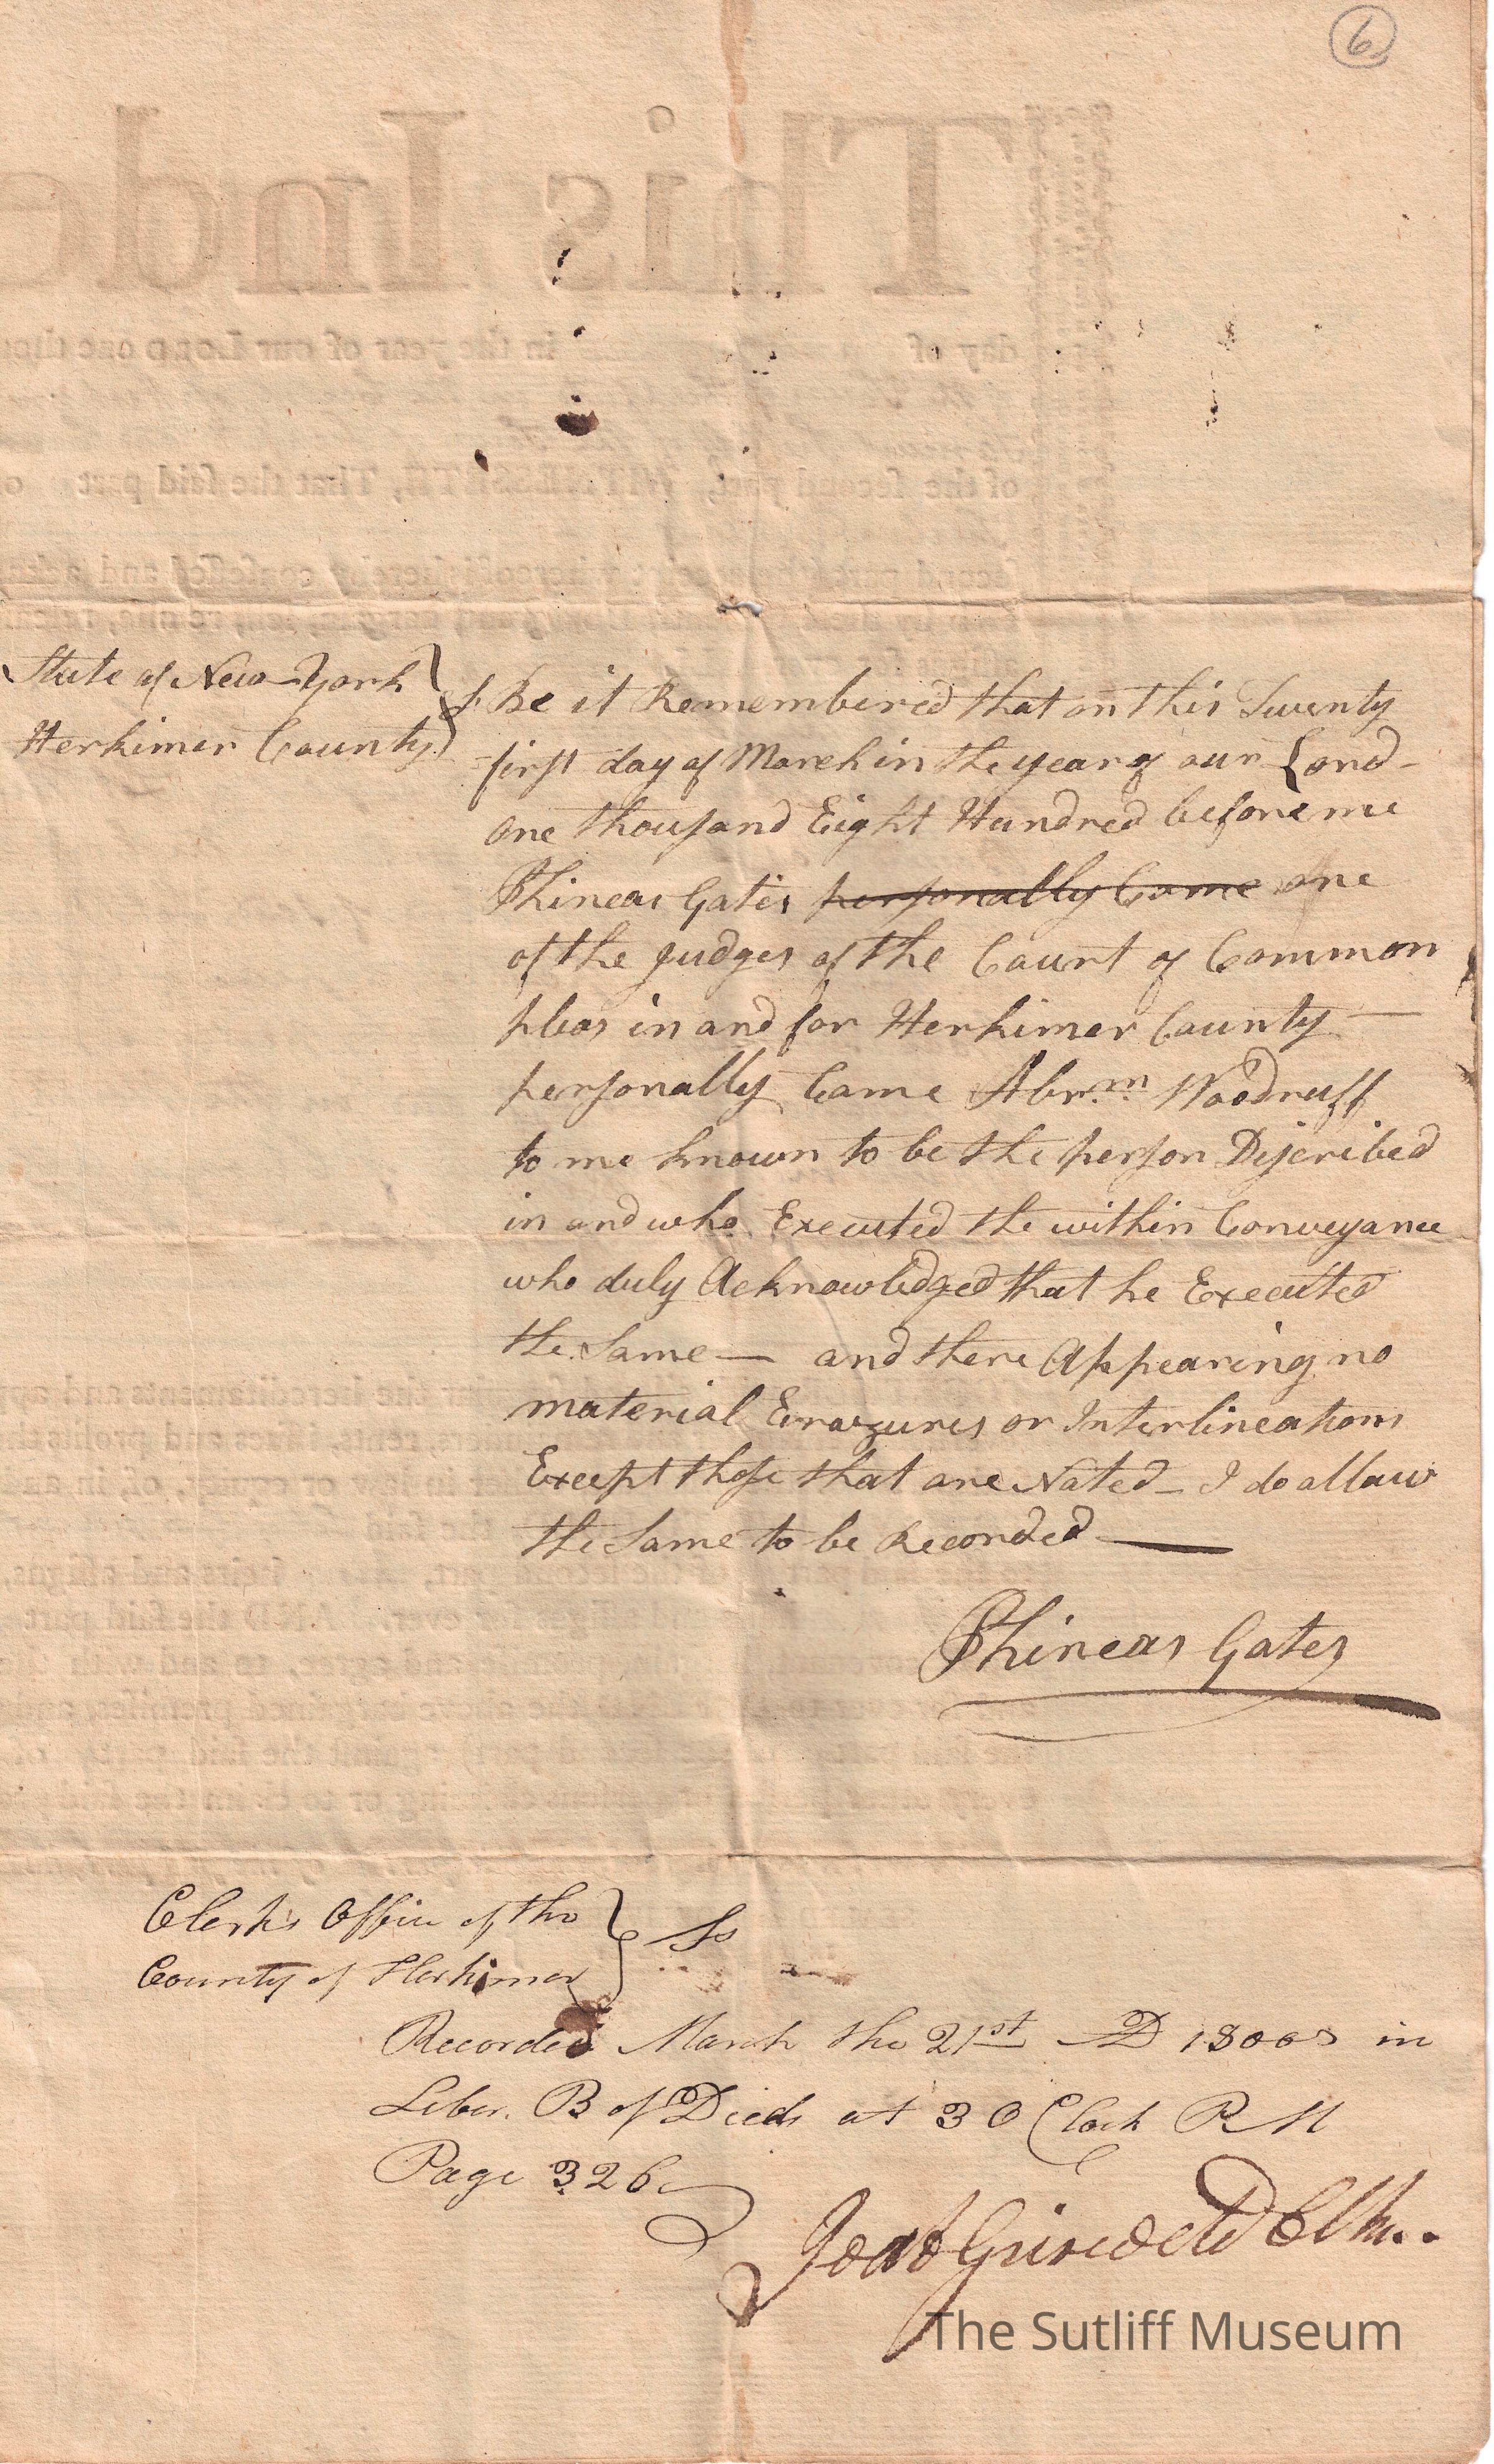 6
State of New-York
Herkimer County
ss. Be it Remembered that on this Twenty
first day of March in the year of our Lord-
one thousand Eight Hundred before me
Phineas Gates personally Came one
of the Judges of the Court of Common
pleas in and for Herkimer County —
personally Came Abrm. Woodruff
to me known to be the person Discribed
in and who Executed the within Conveyance
who duly Acknowledged that he Executed
the Same — and there Appearing no
material Errazures or Interlineations
Except those that are Noted - I do allow
the Same to be Recorded —
Phineas Gates
Clerk's Office of the
County of Herkimer
Ss
Recorded March the 21st AD 1800 in
Liber. B of Deeds at 3 O Clock PM
Page 326
Joab Griswold Clk..
The Sutliff Museum